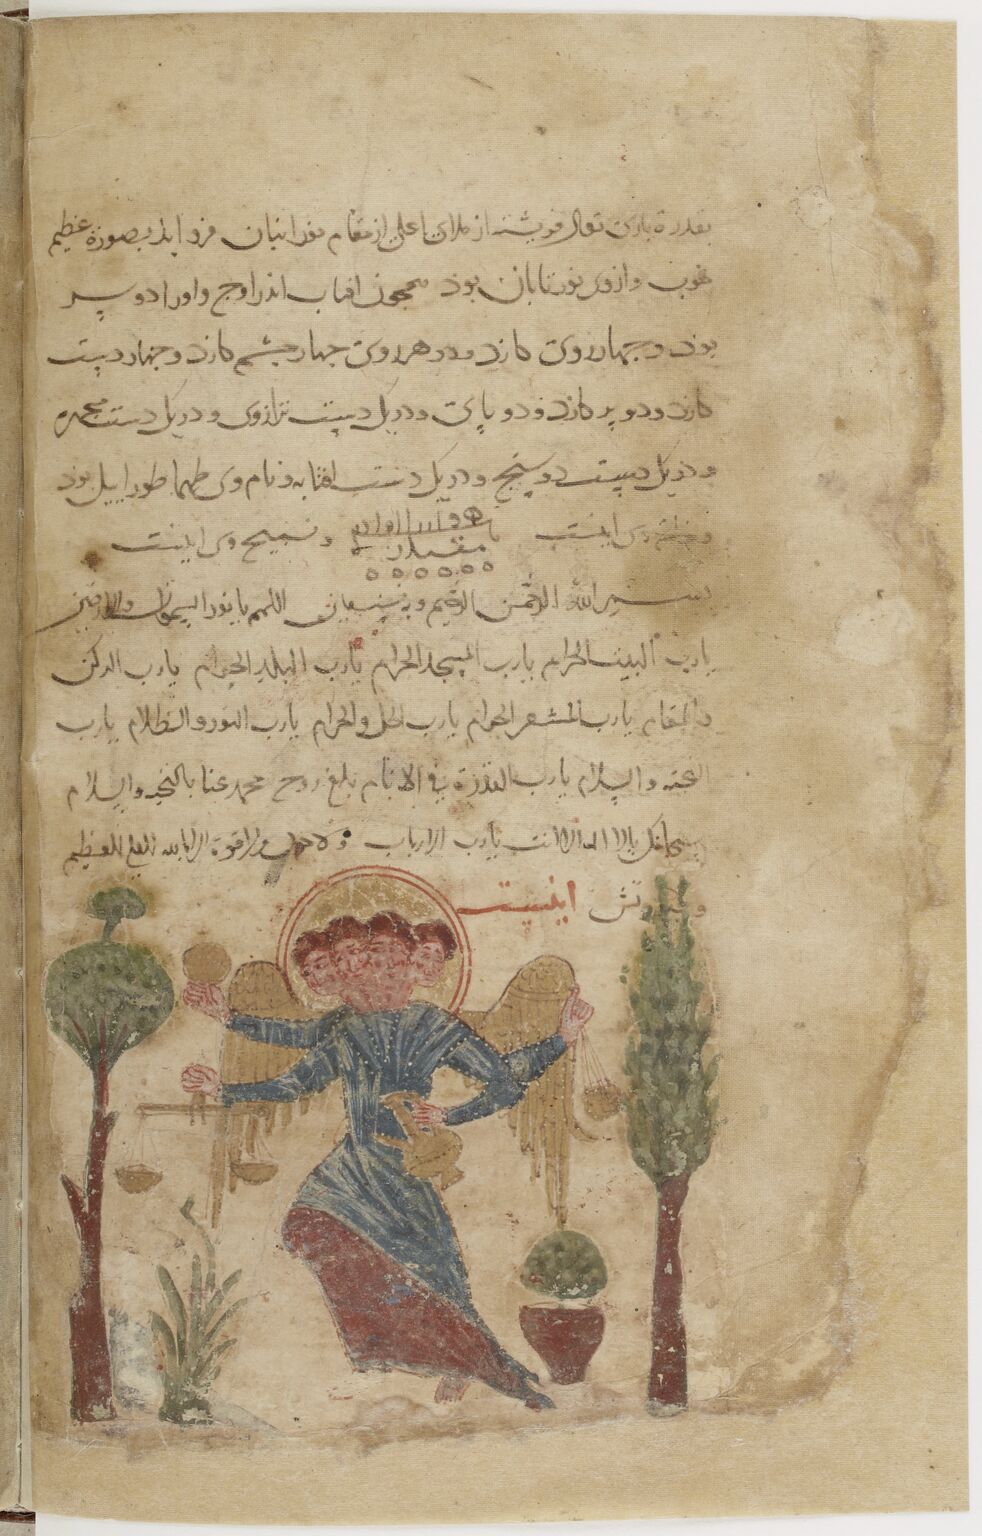 بقدرة باری تعالی فریشته از ملای اعلی از مقام نورانیان فرو ایذ بصورة عظیم
خوب و از وی نور تابان بوذ همجون افتاب اندر اوج و اورا دو سر
بوذ و جهار روی دارد و در هر روی جهار جشم دارد و جهار دست
دارد و دو پر دارد و دو پای و در یک دست ترازوی و در یک دست مجمره
و در یک دست دو سنج و در یک دست افتابه و نام وی طهماطورائیل بوذ
وی اینست و تسبیح وی اینست
بسم الله الرحمن الرحیم وبه نستعین اللهم یا نور السموات والارضین
یارب البیت الحرام یارب المسجد الحرام یارب البلد الحرام یارب الرکن
والمقام یارب المشعر الحرام یارب الحل والحرام یارب النور والظلام یارب
التحیه والسلام یارب القدرة فی الانام بلغ روح محمد عنا بالتحیه والسلام
سبحانک یا لا اله الا انت یارب الارباب ولا حول ولا قوة الا بالله العلی العظیم
و صورتش اینست